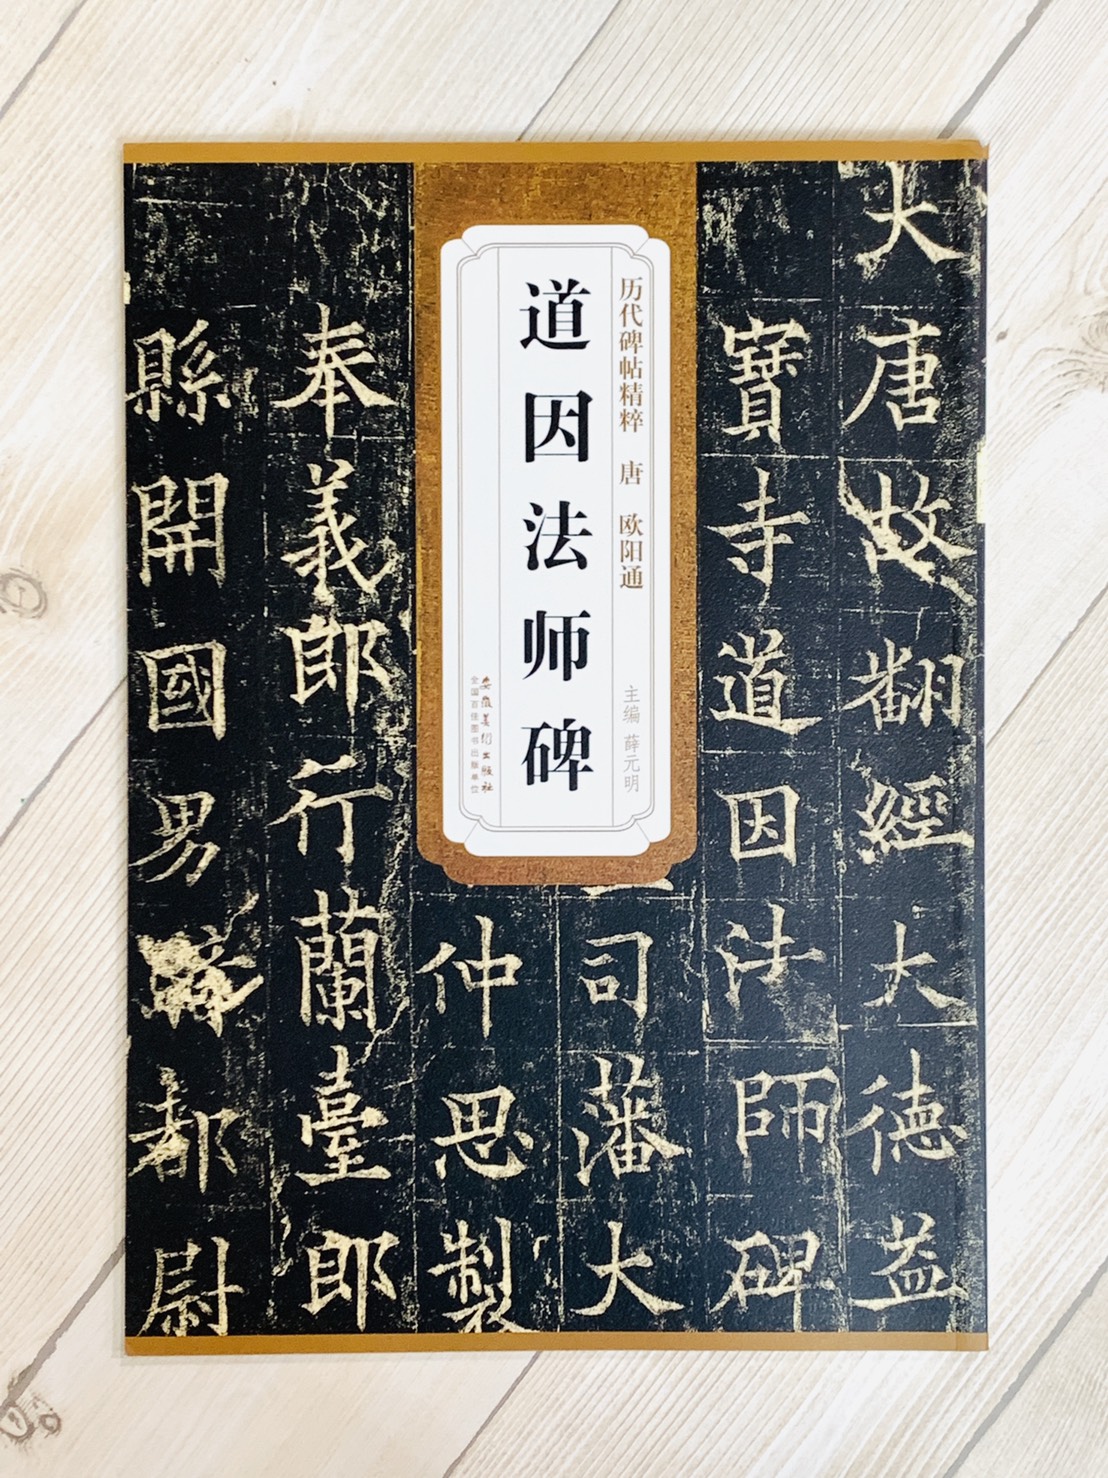 大唐故翻經大德益
寶寺道因法師碑
历代碑帖精粹 唐 欧阳通
主编 薛元明
道因法师碑
安徽美术出版社
全国百佳图书出版单位
司藩大
仲思製
奉義郎行蘭臺郎
縣開國男
都尉